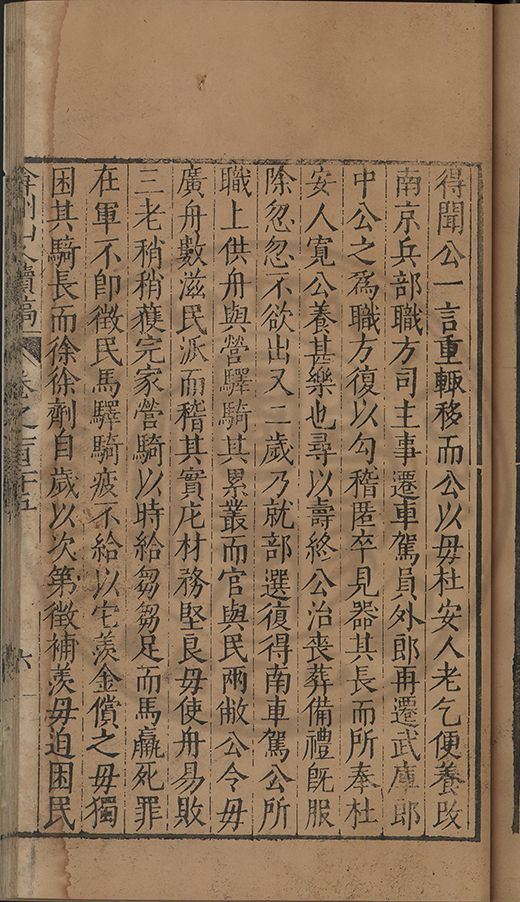 得聞公一言重輙移而公以毋杜安人老乞便養改
南京兵部職方司主事遷車駕員外郎再遷武庫郎
中公之爲職方復以勾稽匿卒見器其長而所奉杜
安人寬公養甚樂也尋以壽終公治喪葬備禮既服
除忽忽不欲出又二歲乃就部選復得南車駕公所
職上供舟與營驛騎其累叢而官與民兩敝公令毋
廣舟數滋民派而稽其實庀材務堅良毋使舟易敗
三老稍稍獲完家營騎以時給芻芻足而馬羸死罪
在軍不卽徵民馬驛騎疲不給以宅羨金償之毋獨
困其騎長而徐徐劑自歲以次第徵補羡毋迫困民
續稿 卷之百 五 六